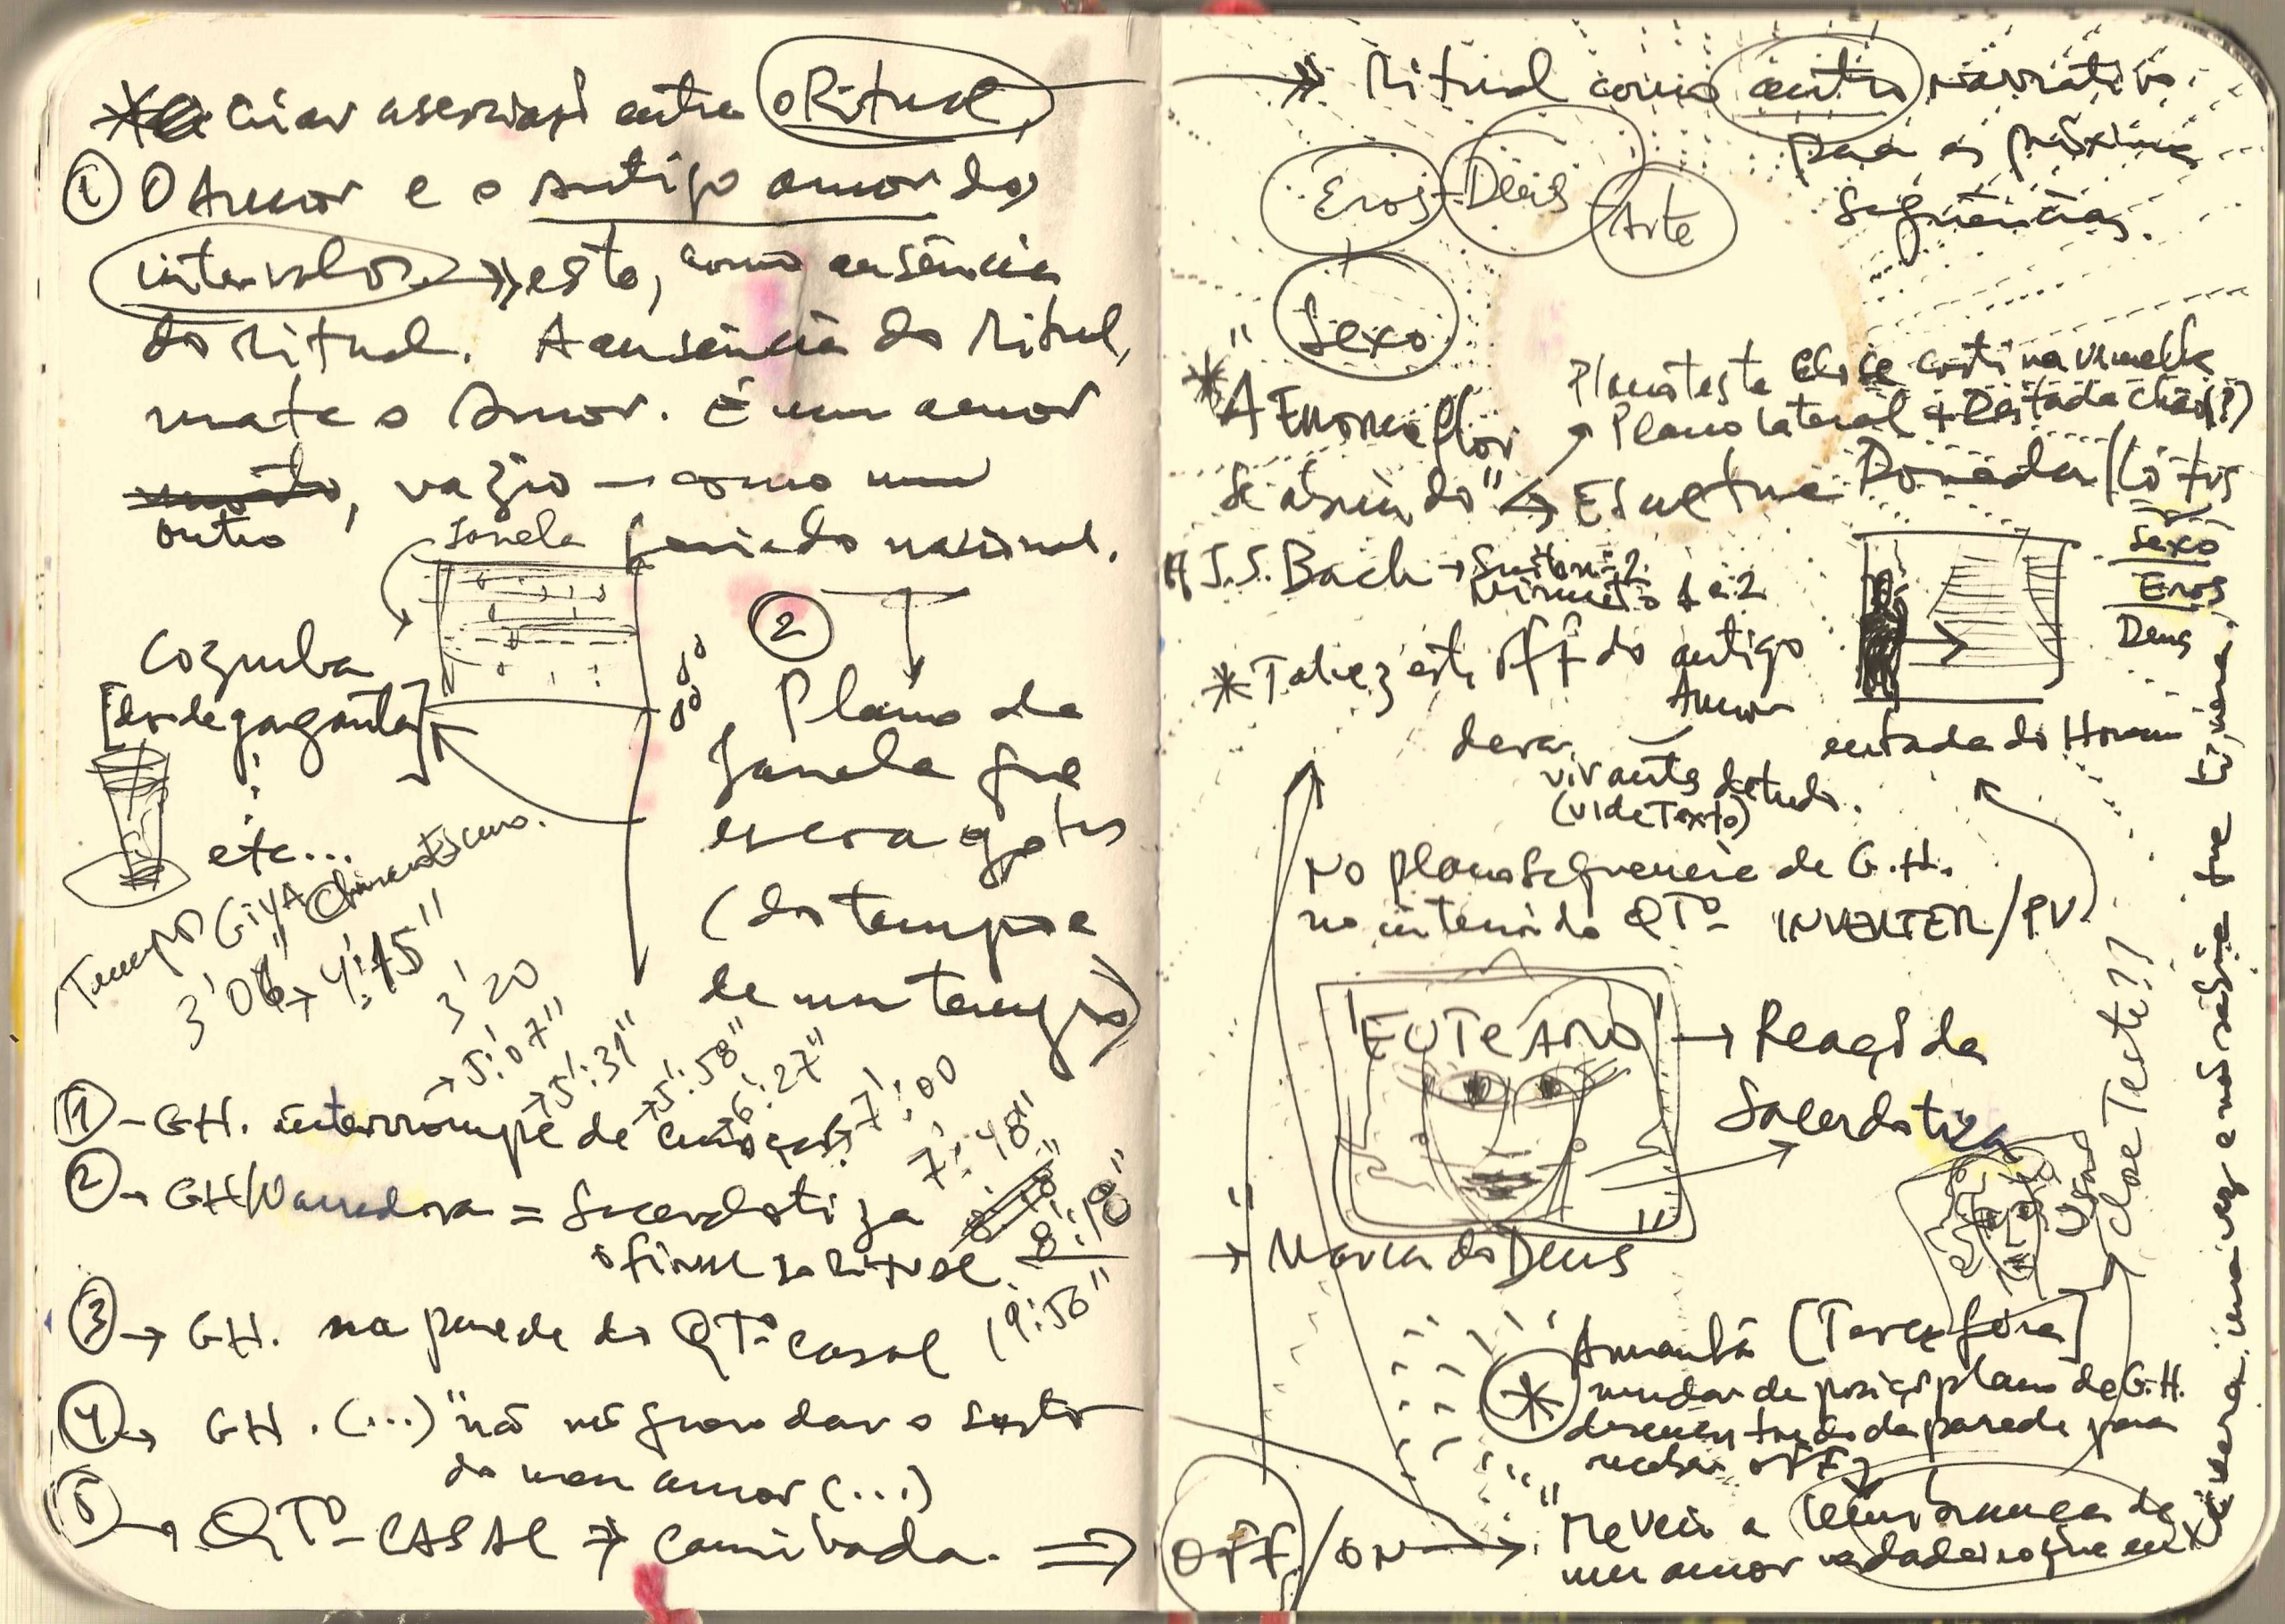 * Criar associação entre o Ritual,
① O Amor e o antigo amor dos
intervalos → esto, como ausência
do Ritual. A ausência do Ritual,
mata o Amor. É um amor
outro, vazio — como um
feriado nacional.
Janela
Cozinha
[dor de garganta]
etc...
②
Plano da
Janela que
escorre gotas
(do tempo e
de um tempo)
Tempo
3'06" → 4':45"
3'20
→ 5':07"
→ 5':31"
→ 5':58"
6':27"
7':00
7':48"
8':18"
(9':56"
① - GH. interrompe de
② → GH/Narradora = Sacerdotiza
③ → GH. na parede do QTº casal
④ → GH. (...) "não me quero dar o susto
do meu amor (...)
⑤ → QTº CASAL → Caminhada. ⇒
→ Ritual como centro narrativo
para as próximas
Sequências.
Eros
Deus
Arte
Sexo
* "A Enorme flor
se abrindo" →
Plano teste close cortina vermelha
Plano lateral + Deitada chão(?)
/Lótus
Sexo
Eros
Deus
# J.S. Bach → Suite nº 2
Minueto 1 e 2
* Talvez este off do antigo
Amor
deva
vir antes de tudo.
(vide Texto)
entrada do Homem
No plano sequência de G.H.
no interior do QTº INVERTER/PV
"EU TE AMO" → Reação da
Sacerdotiza
→ Marca do Deus
Close Teste??
Amanhã [Terça feira]
* mudar de posição plano de G.H.
desencostando da parede para
receber off
OFF/ON → "Me veio a lembrança de
um amor verdadeiro que eu
tivera uma vez e não sabia que tivera,